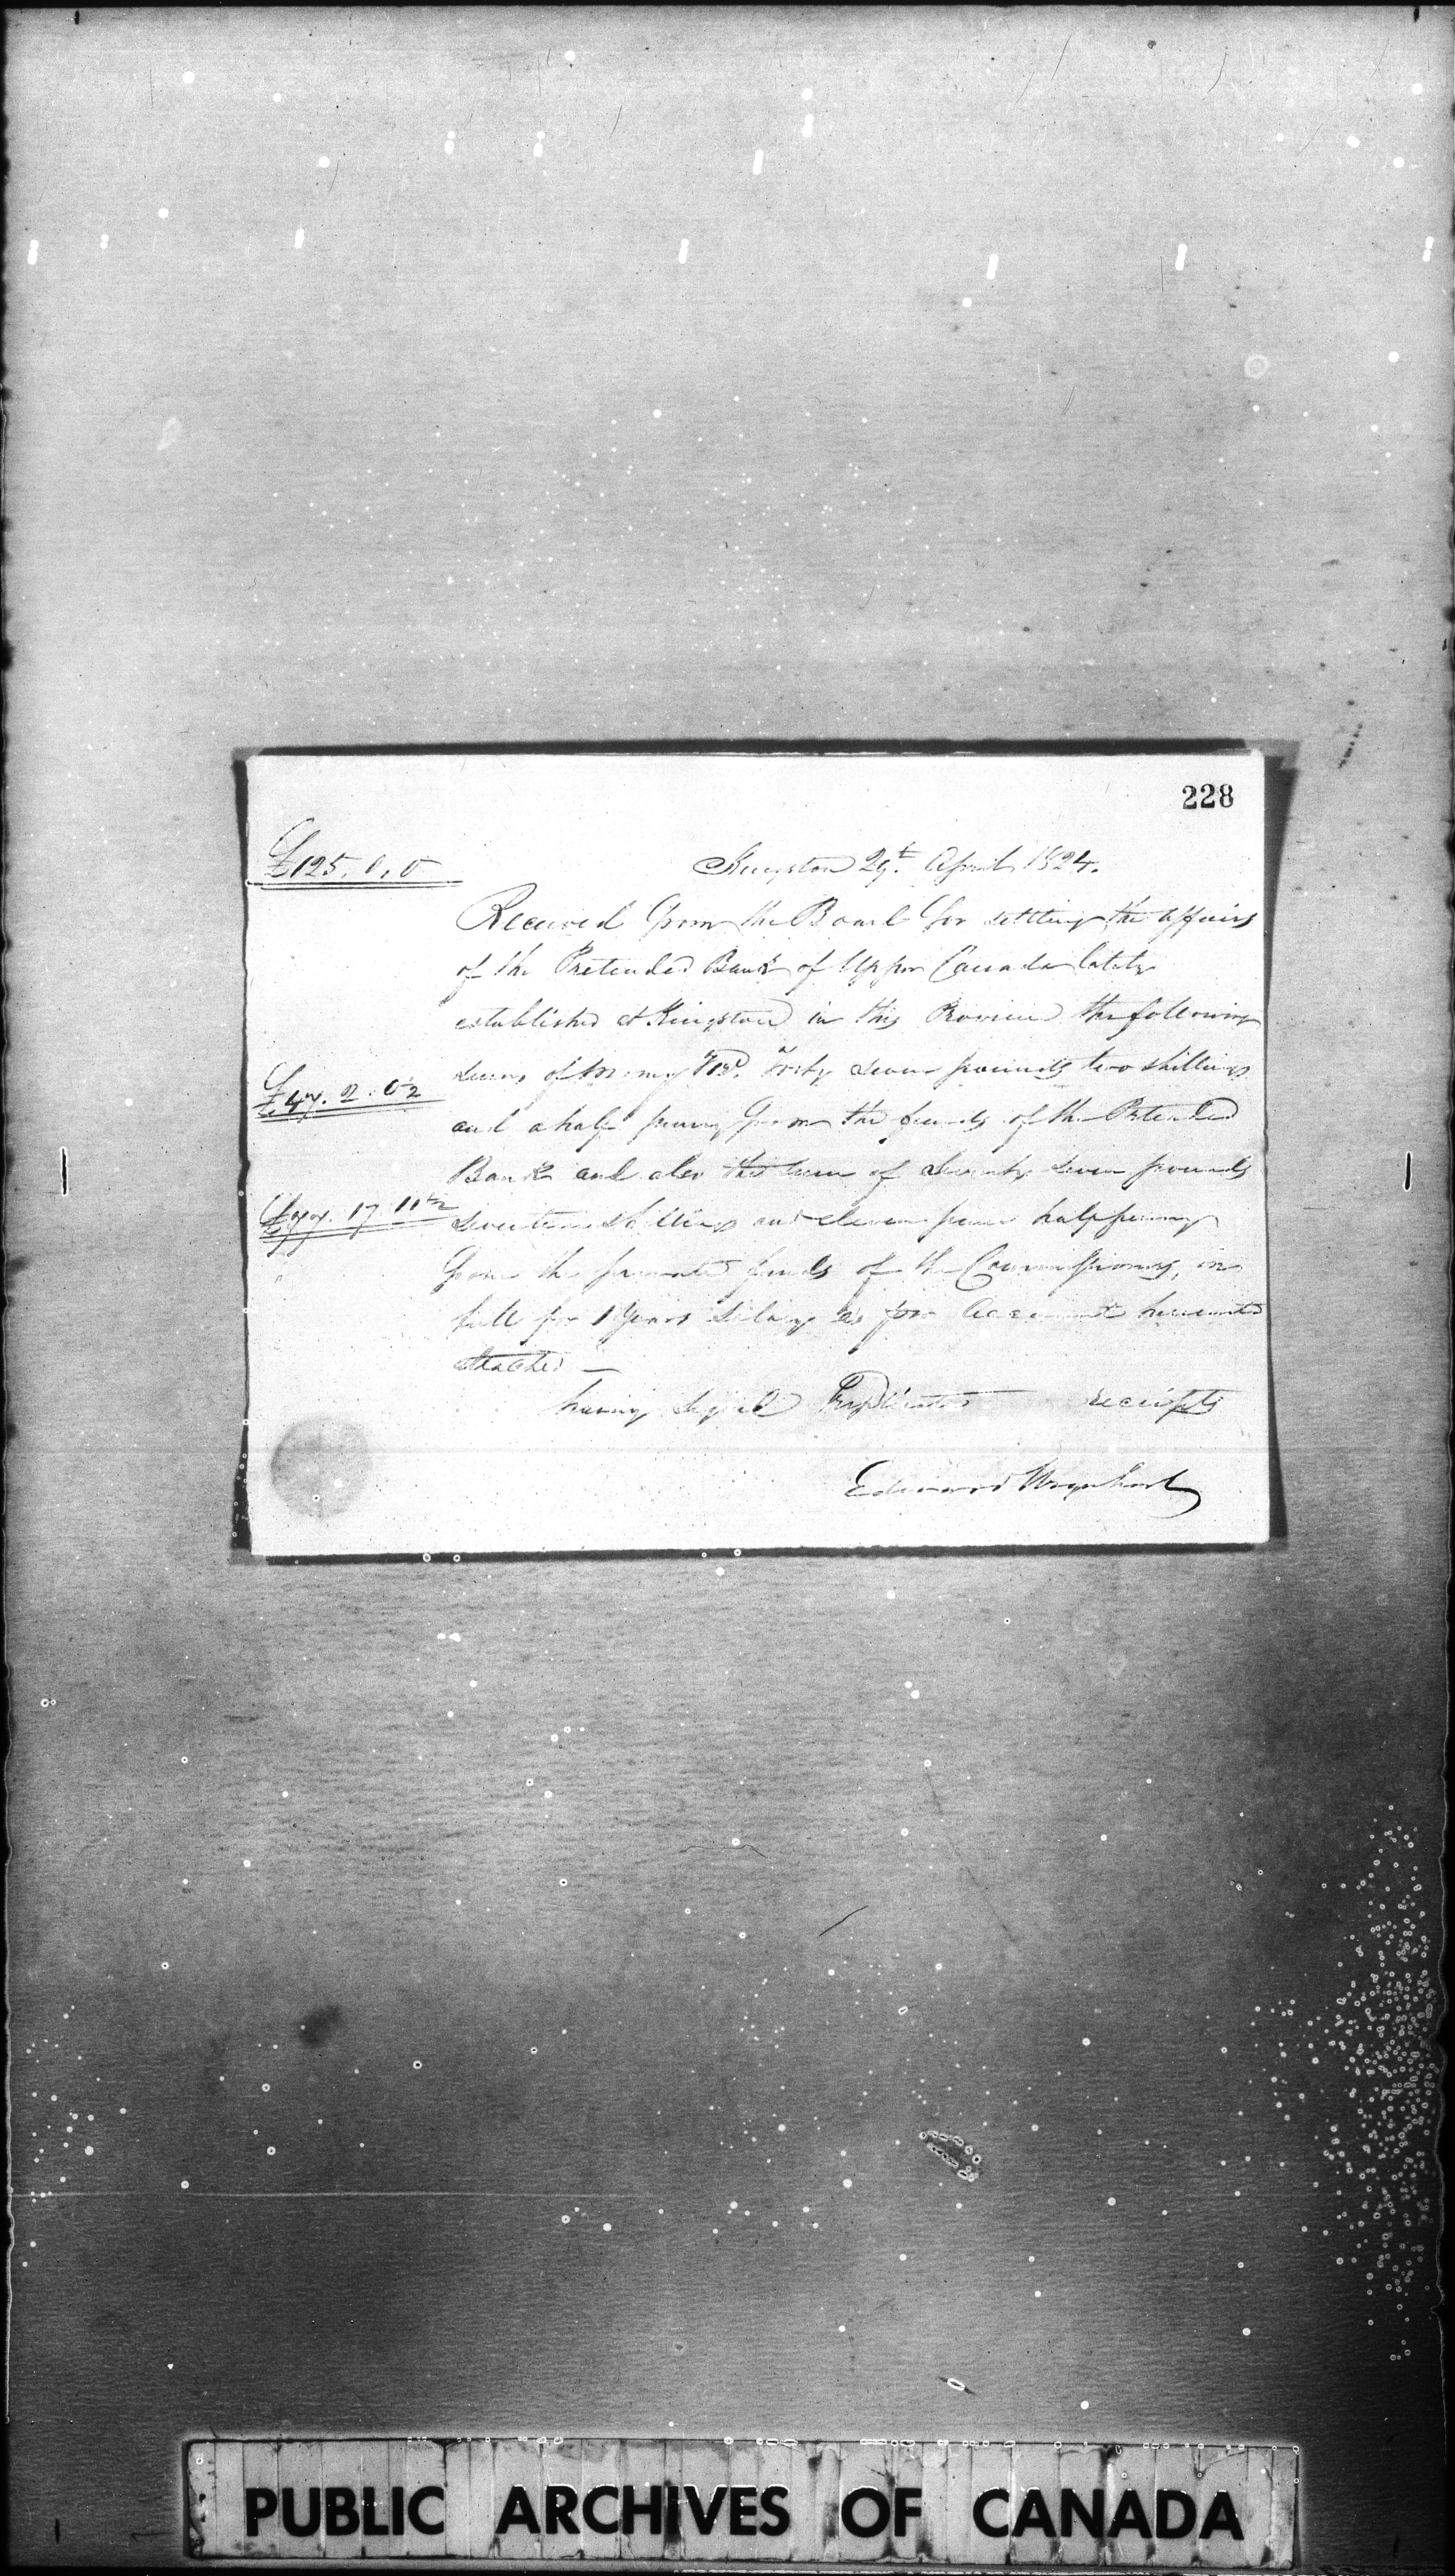 228
£125. 0. 0
Kingston 29th. April 1824.
Received from the Board for settling the affairs
of the Pretended Bank of Upper Canada lately
established at Kingston in this Province the following
£47. 2. 0½
sums of money Viz. Forty seven pounds two shillings
and a half penny from the funds of the Pretended
Bank and also the sum of Seventy seven pounds
£77. 17. 11½
seventeen shillings and eleven pence half penny
from the private funds of the Commissioners, in
full for 1 Years Salary as per Account hereunto
attached —
having signed Triplicate receipts
Edward Urquhart
PUBLIC ARCHIVES OF CANADA